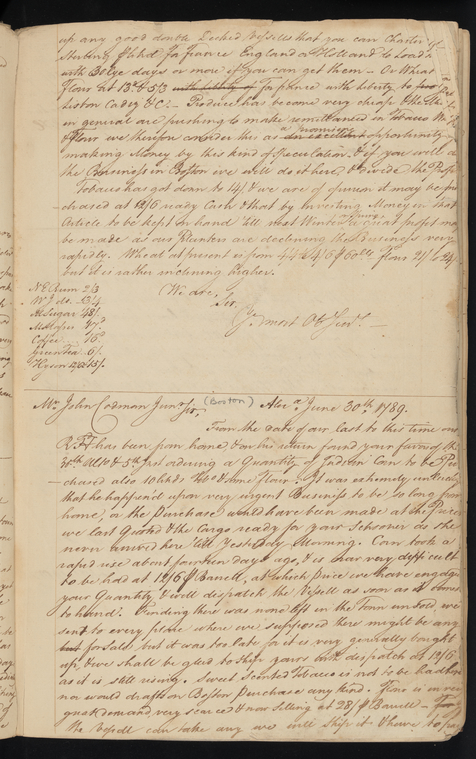 up any good double Decked Vessells that you can Charter at
Sterling ⅌ hhd for France England or Holland to Load
with 30 lye days or more if you can get them — Or Wheat
Flour at 13 & 5/3 with liberty of for ditto with liberty to
Lisbon Cadiz &C: — Produce has become very cheap & the
in general are pushing to make remittances in Tobacco
& Flour we therefore consider this as a promising opportunity
making Money by this kind of Speculation & if you will
the Business in Boston we will do it here & divide the
Tobacco has got down to 14/ & we are of opinion it may be
chased at 12/6 ready Cash & that by Investing Money in that
Article to be kept on hand till next Winter or spring a great profit may
be made as our Planters are declining the Business very
rapidly. Wheat at present is from 4/4 @ 4/6 ⅌ 60lb flour 21/ @ 24/
but it is rather inclining higher.
NE Rum 2/3
W I do. 3/4
M Sugar 48/
Molasses
Coffee
Green Tea 6/
Hyson
We are,
Sir,
Yr most Ob Servt. —
Mr. John Codman Junr. (Boston) Alexa June 30th. 1789.
Sir
From the date of our last to this time our
R. F. has been from home, & on his return found your favours of the
30th Ulto & 5th Inst ordering a Quantity of Indian Corn to be
chased also 10 hhds Tobo & some Flour. It was extremely
that he happen'd upon very urgent Business to be so long from
home, or the Purchase would have been made at the prices
we last Quoted & the Cargo ready for your Schooner as she
never arrived here till Yesterday Morning. Corn took a
rapid rise about fourteen days ago, & is now very difficult
to be had at 12/6 ⅌ Barrell, at which price we have engaged
your Quantity & will dispatch the Vessell as soon as it comes
to hand. Finding there was none left in the Town unsold we
sent to every place where we supposed there might be any
but for Sale but it was too late for it is very generally bought
up, & we shall be glad to ship yours with dispatch at 12/6
as it is still rising. Sweet Scented Tobacco is not to be had here
nor would drafts on Boston purchase any kind. Flour is in very
great demand, very scarce & now selling at 28/ ⅌ Barrell —
the Vessell can take any we will ship it & have to